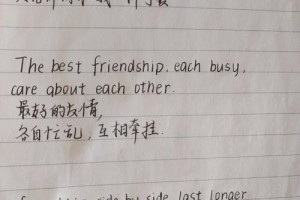 The best friendship, each busy,
care about each other.
最好的友情,
各自忙乱, 互相牵挂.
side by side last longer